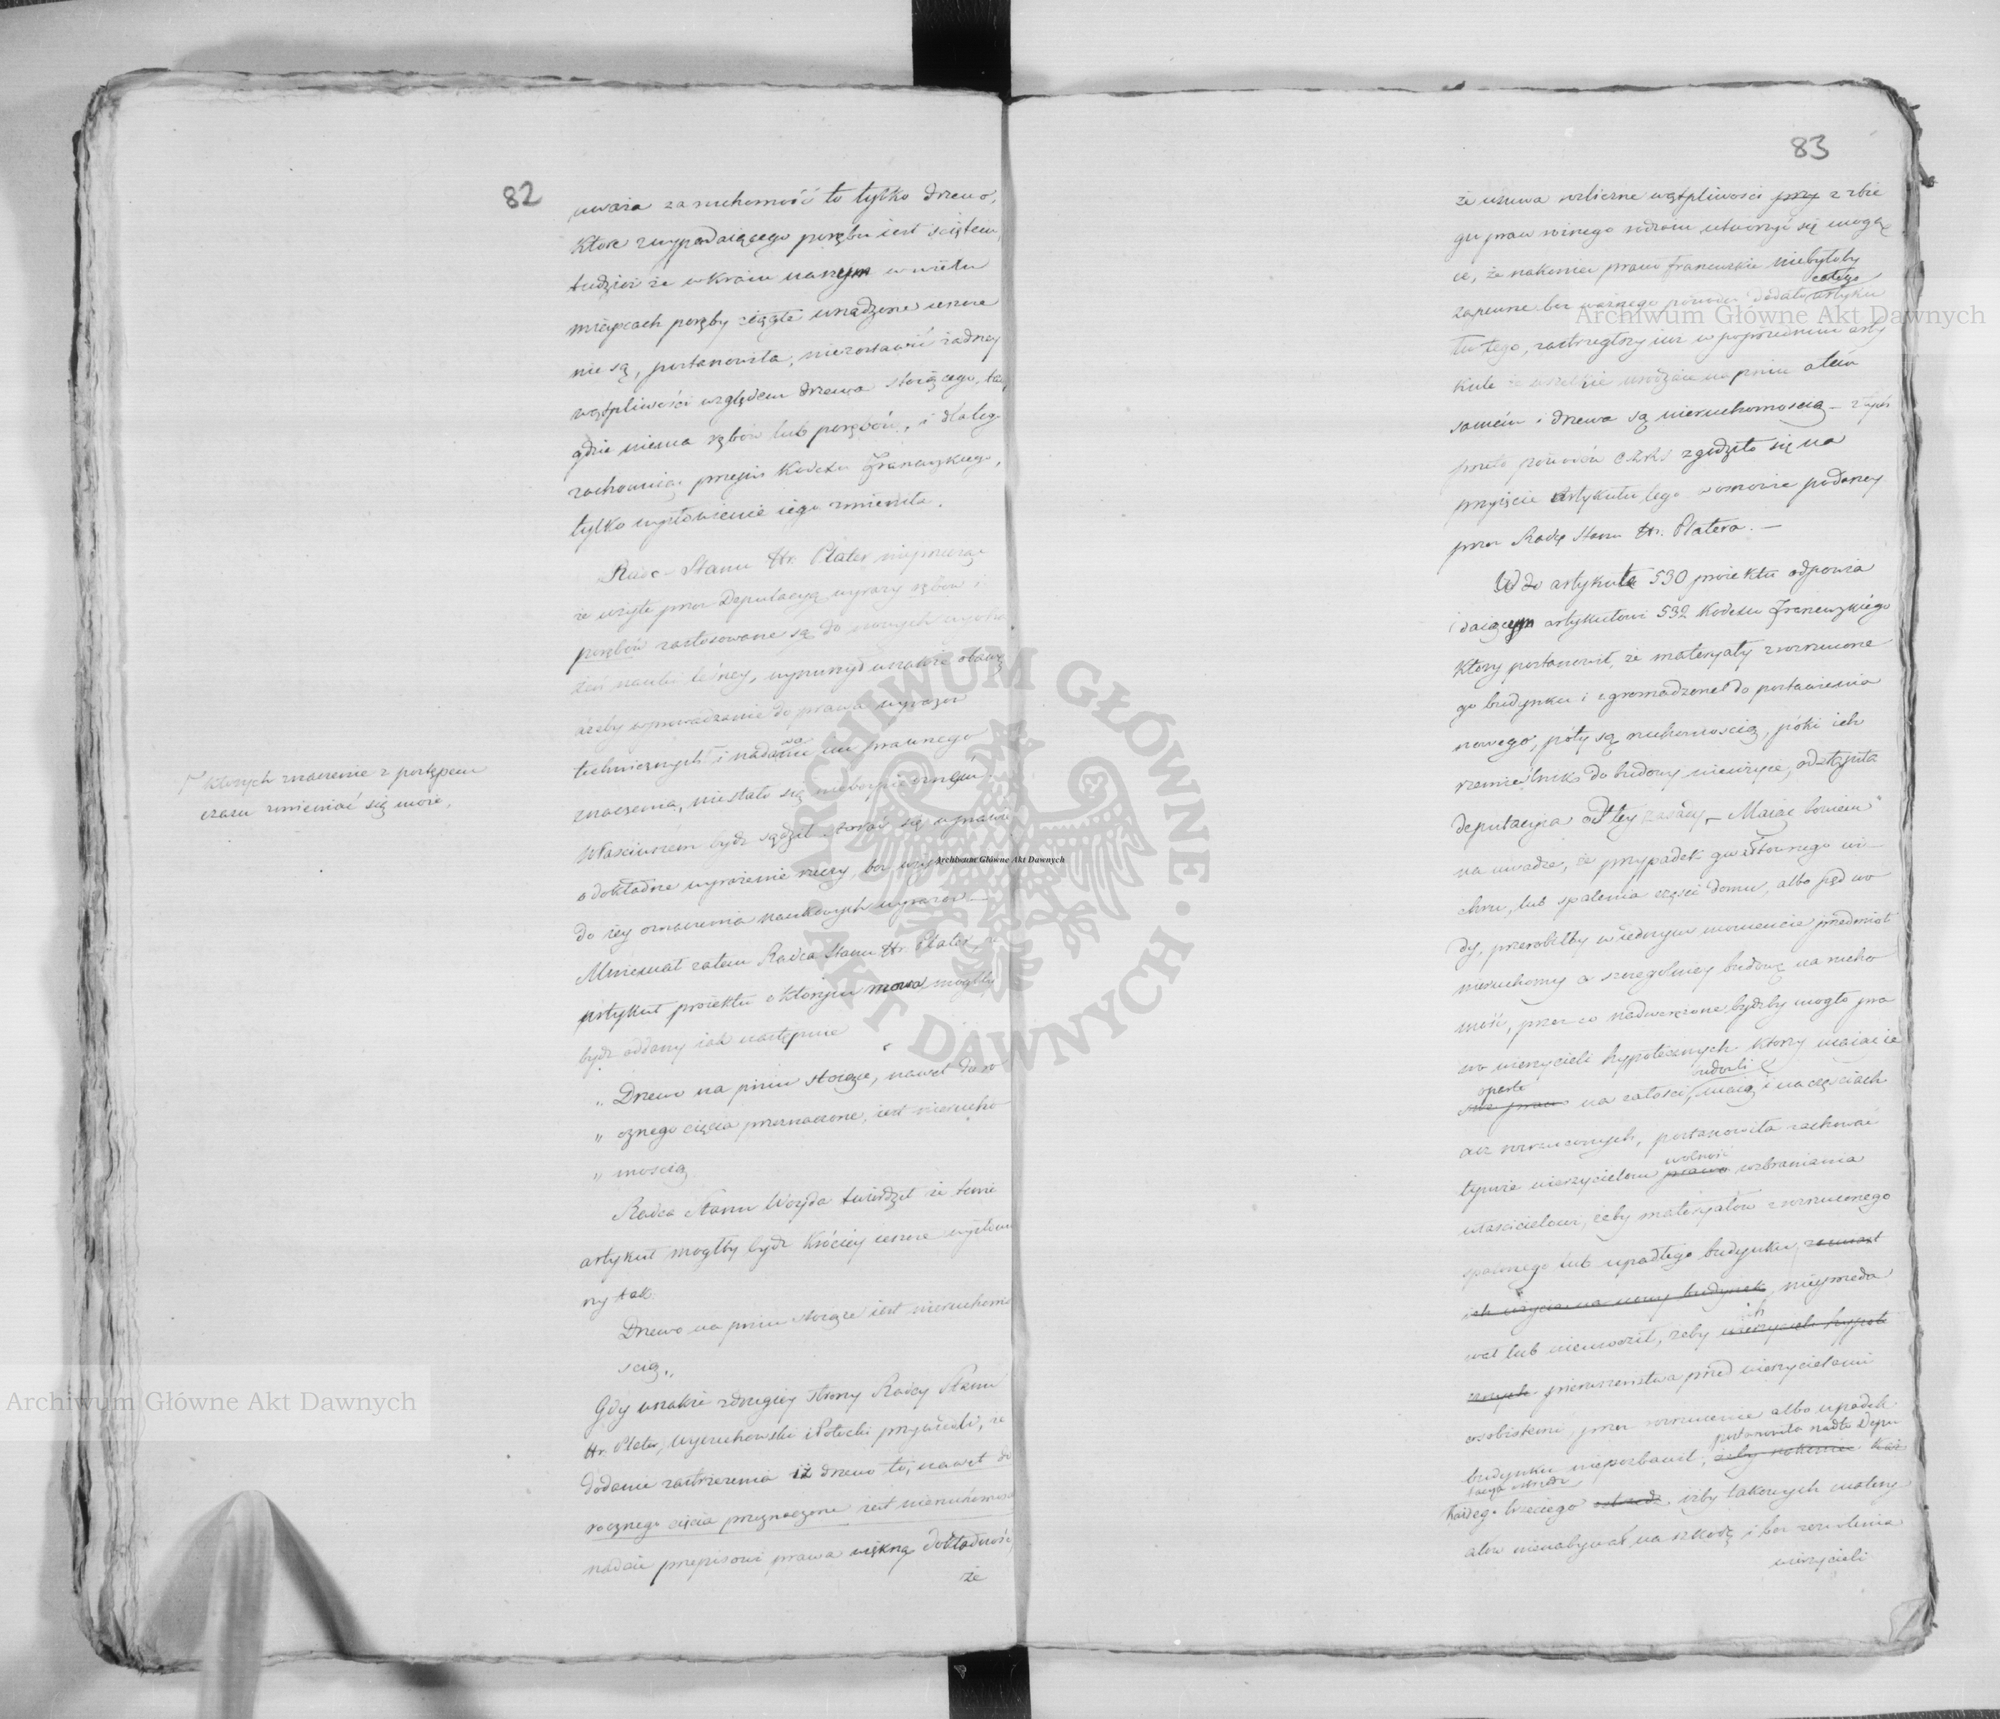 82
uważa za ruchomość to tylko drzewo,
które z wypadaiącego porębu iest ściętem,
tudzież że w kraiu naszym w wielu
mieyscach poręby ciągłe urządzone ieszcze
nie są, postanowiła, niezostawić żadney
wątpliwości względem drzewa stoiącego, tam
gdzie niema rębów lub porębów, i dlatego
zachowuiąc przepis Kodexu Francuzkiego,
tylko wysłowienie iego zmieniła.
Radca Stanu Hr. Plater nieprzecząc
że użyte przez Deputacyą wyrazy rębów i
porębów zastosowane są do nowych
nauki leśney, wynurzył wszakże obawę
ażeby wprowadzenie do prawa wyrazów
technicznych i nadanie im prawnego
znaczenia, niestało się niebezpiecznem.
Właściwszem bydź sądził starać się w prawie
o dokładne wyrażenie rzeczy bez
do iey oznaczenia naukowych wyrazów
Mniemał zatem Radca Stanu Hr. Plater że
artykuł proiektu o którym mowa mógłby
bydź oddany iak następuie
„ Drzewo na pniu stoiące, nawet do ro
„ cznego cięcia przeznaczone, iest nierucho
„ mością
Radca Stanu Woyda twierdził że tenże
artykuł mógłby bydź króciey ieszcze wysłowio
ny tak.
Drzewo na pniu stoiące iest nieruchomo
ścią„
Gdy wszakże z drugiey strony Radcy Stanu
Hr. Plater, Wyczechowski i Potocki przywiedli, że
dodanie zastrzeżenia iż drzewo to, nawet do
rocznego cięcia przeznaczone iest nieruchomością
nadaie przepisowi prawa większą dokładność,
że
których znaczenie z postępem
czasu zmieniać się może,
83
że usuwa rozliczne wątpliwości przy z zbie
gu praw różnego rodzaiu utworzyć się mogą
ce, że nakoniec prawo francuzkie niebyłoby
całego
zapewne bez ważnego powodu dodało artyku
łu tego, zastrzegłszy iuż w poprzednim arty
kule że wszelkie urodzaie na pniu a tém
samém i drzewa są nieruchomością – z tych
przeto powodów zgodziło się na
przyięcie Artykułu tego w osnowie podaney
przez Radcę Stanu Hr. Platera. —
Co do artykułu 530 proiektu odpowia
daiącym artykułowi 532 Kodexu Francuzkiego
który postanowił, że materyały z rozrzucone
go budynku i zgromadzone do postawienia
nowego, póty są ruchomością, póki ich
rzemieślnik do budowy nieużyie, odstąpiła
Deputacyia od tey zasady – Maiąc bowiem
na uwadze, że przypadek gwałtownego wi-
chru, lub spalenia części domu, albo pęd wo
dy, przerobiłby w iednym momencie przedmiot
nieruchomy a szczególniey budowę na rucho
mość, przez co nadwerężone bydźby mogło pra
wo wierzycieli hypotecznych którzy maiąc ie
oparte
na całości, maią i na częściach
rozrzuconych, postanowiła zachować
wolność
tymże wierzycielom prawo wzbraniania
właścicielowi, żeby materyałów z rozrzuconego
spalonego lub upadłego budynku, zamiast
ich użycia na nowy budynek, niesprzeda
ich
wał lub nieuwoził, żeby wierzycieli hypote
cznych pierwszeństwa przed wierzycielami
osobistemi, przez rozrzucenie albo upadek
postanowiła nadto Depu
budynku niepozbawił, żeby nakoniec każ
każdego trzeciego iżby takowych matery
ałów nienabywał na szkodę i bez zezwolenia
wierzycieli
Archiwum Główne Akt Dawnych
Archiwum Główne Akt Dawnych
Archiwum Główne Akt Dawnych
ARCHIWUM GŁÓWNE · AKT DAWNYCH ·